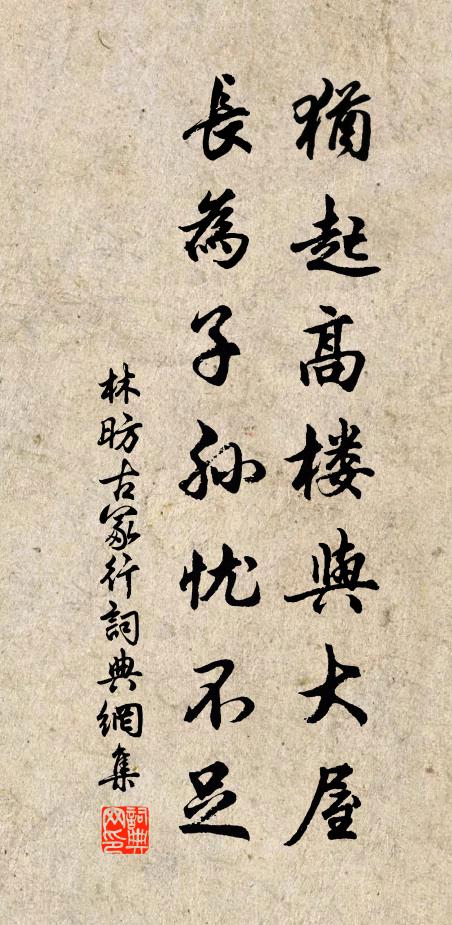 猶起高樓與大屋
長為子孫忧不足
林昉古冢行詞典網集
詞典网印